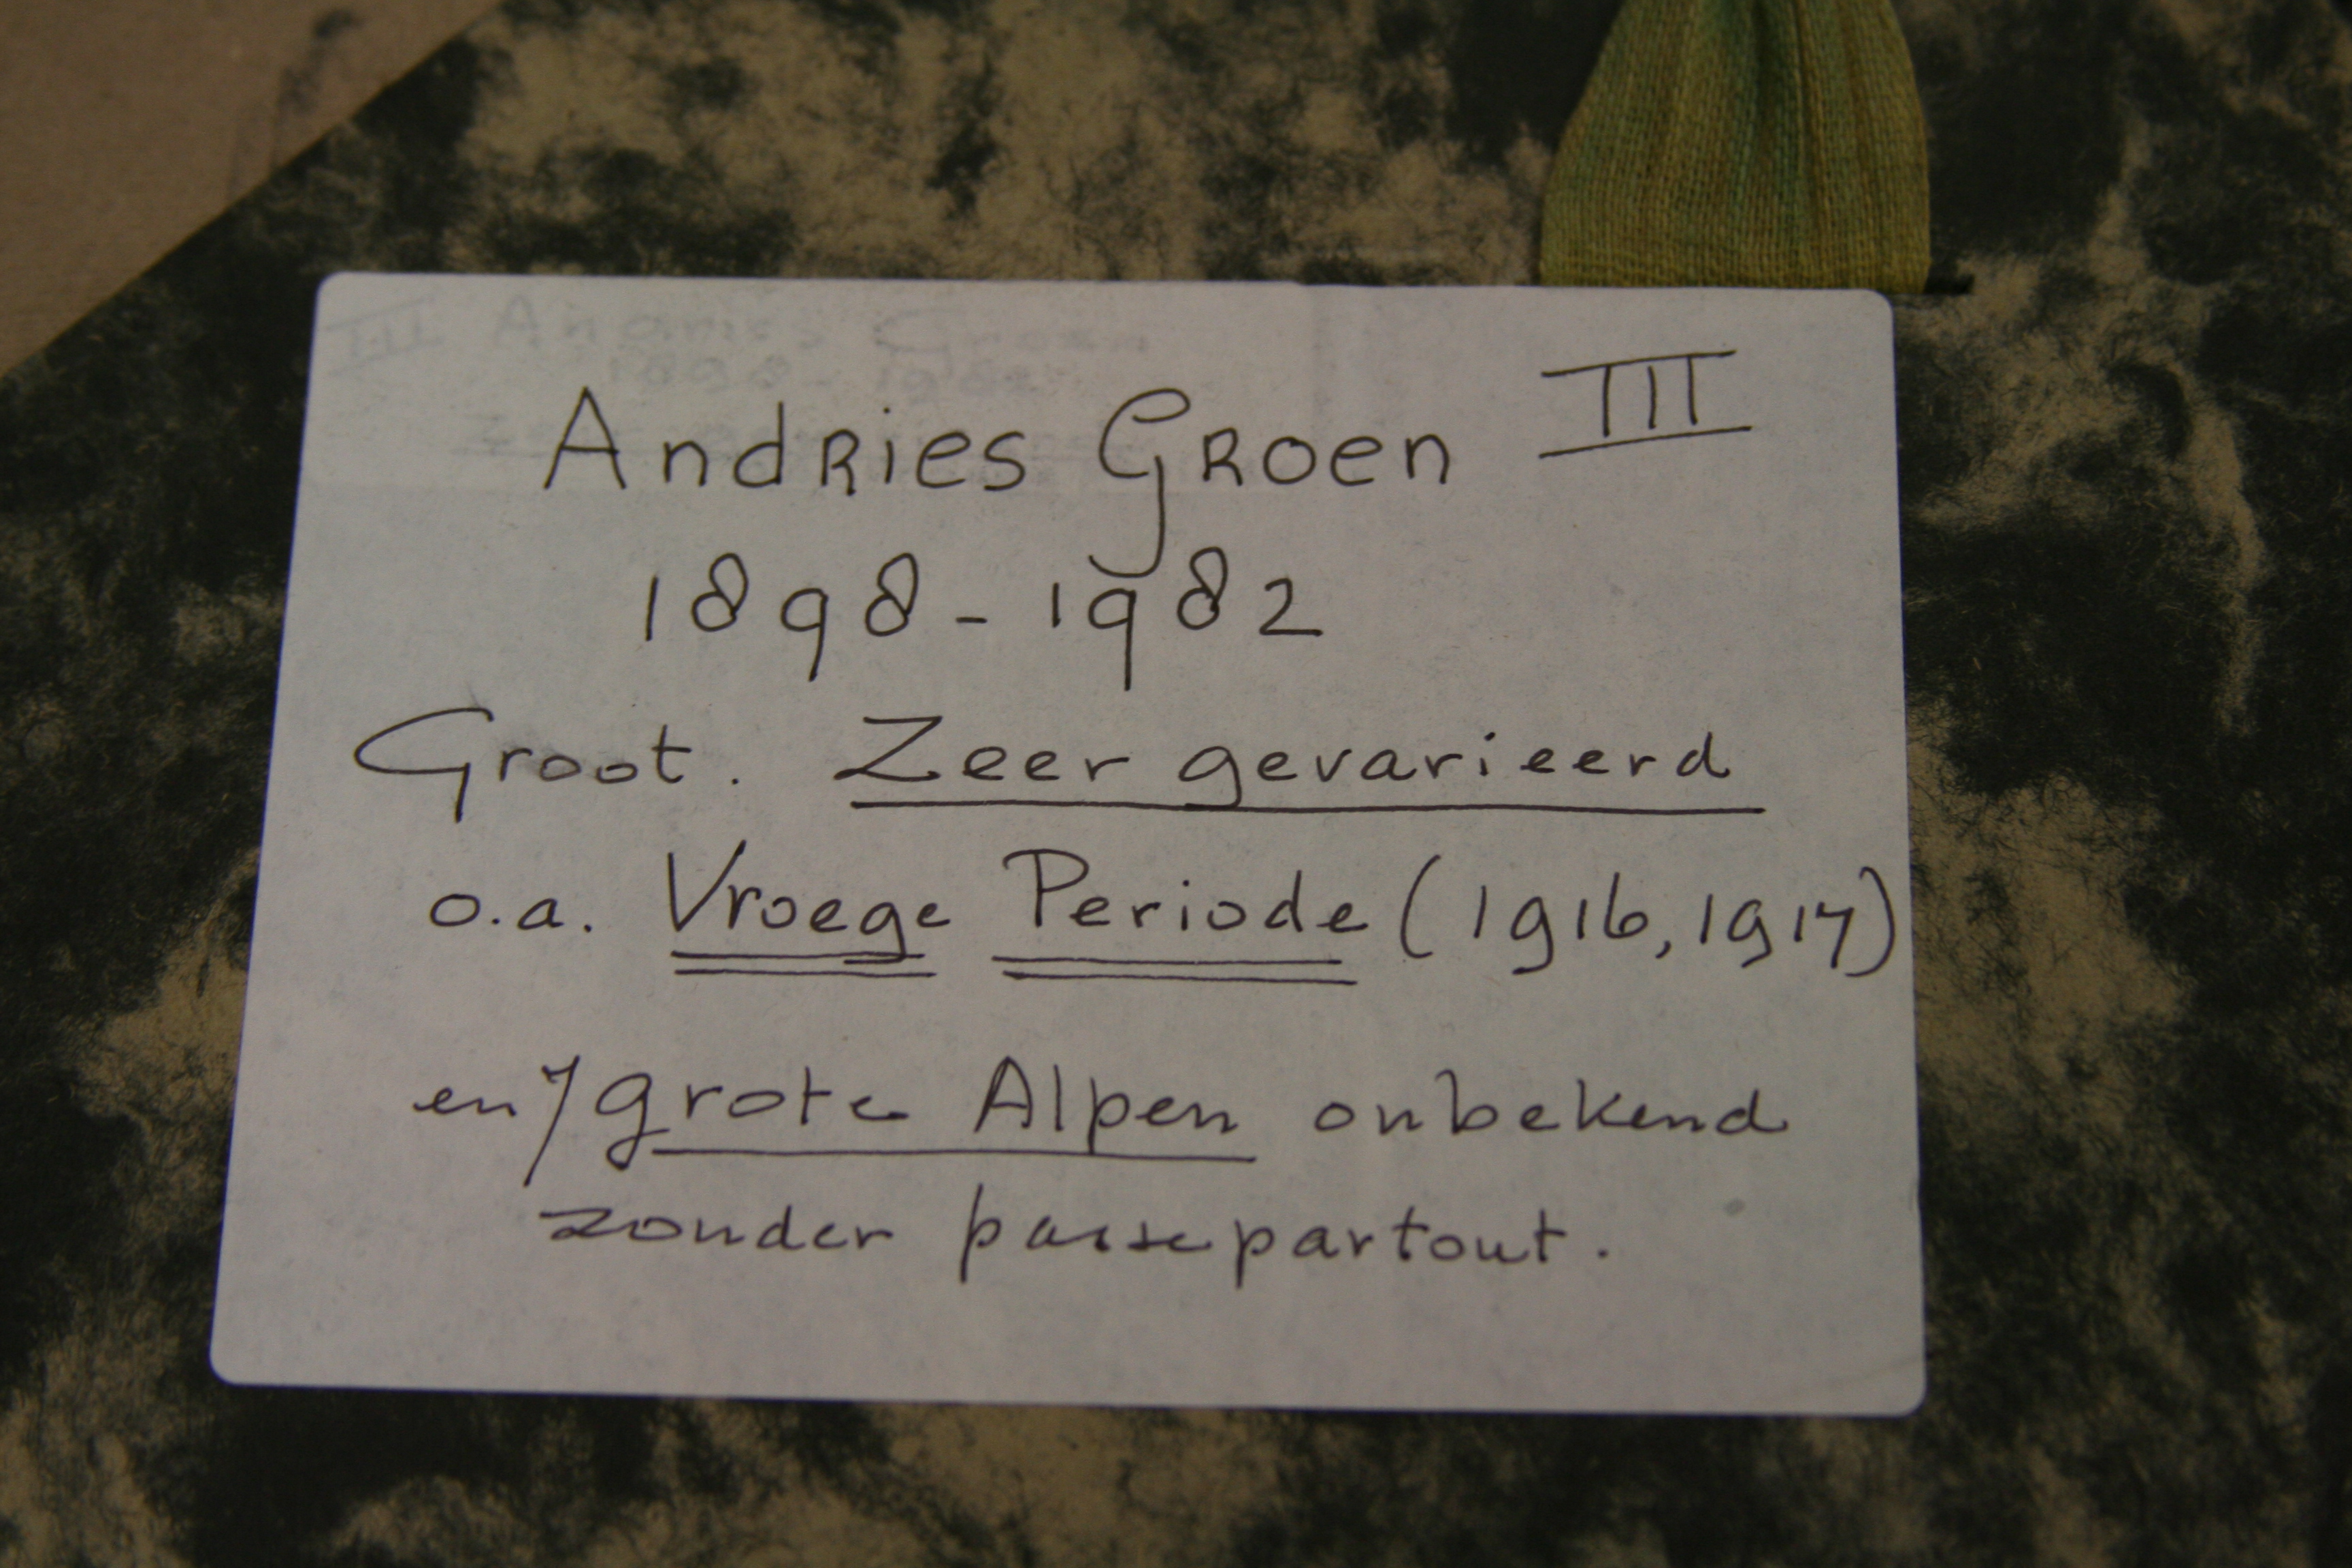 Andries Groen III
1898 - 1982
Groot. Zeer gevarieerd
o.a. Vroege Periode (1916, 1917)
en 7 grote Alpen onbekend
zonder passepartout.